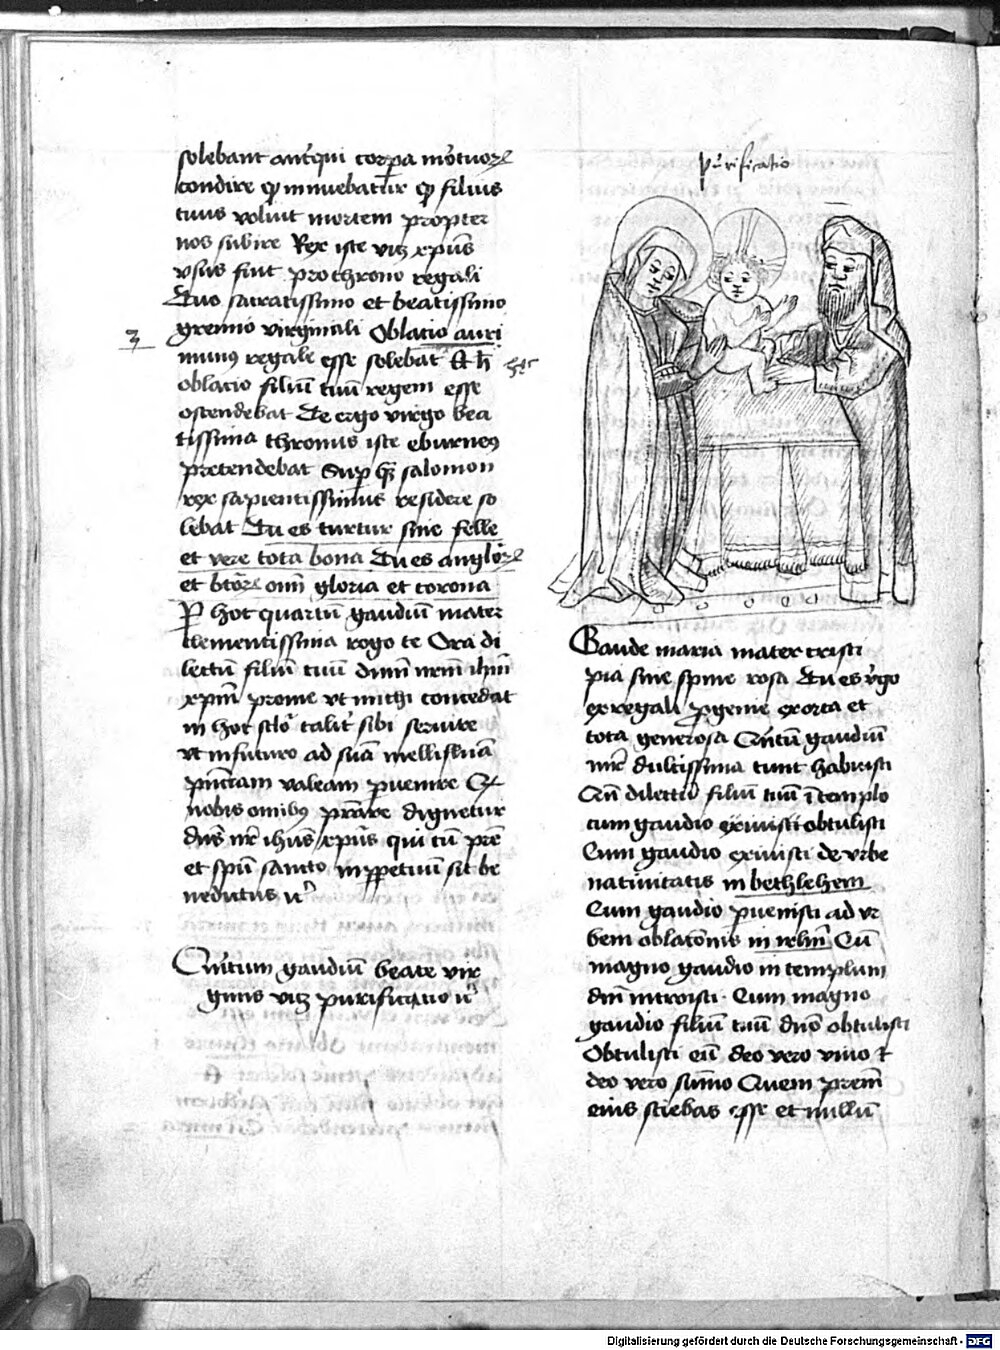 solebant antiqui corpa mortuorꝝ
condire qꝫ innuebatur qꝫ filius
tuus voluit mortem propter
nos subire Rex iste vitꝫ xpūs
vsus fuit pro throno regali
Tuo sacratissimo et beatissimo
gremio virginali Oblatio auri
3
munus regale esse solebat Et h̄
oblatio filiū tuū regem esse
ostendebat Te ergo virgo bea
tissima thronus iste eburneꝰ
pretendebat Sup qꝫ salomon
rex sapientissimus residere so
lebat Tu es turtur sine felle
et vere tota bona Tu es anglorꝝ
et btorꝝ oīm gloria et corona
P hoc quartū gaudiū mater
clementissima rogo te Ora di
lectū filiū tuū dnm nrm ihm
xpm prome vt michi concedat
in hoc sclo talit sibi seruire
vt in futuro ad suā mellifluā
pn̄tiam valeam puenire Qꝫ
nobis omibꝰ prare dignetur
dns nr ihus xpus qui cū pre
et spū sancto in ppetuū sit be
nedictus
Quitum gaudiū beate vir
ginis vitꝫ purificatio
Purificatio
Gaude maria mater cristi
pia sine spine rosa Tu es vgo
ex regali pgenie exorta et
tota generosa Quitū gaudiū
mr dulcissima tunc habuisti
Qn̄ dilectū filiū tuū ī templo
cum gaudio exiuisti obtulisti
Cum gaudio exiuisti de vrbe
natiuitatis in bethlehem
Cum gaudio puenisti ad vr
bem oblatōnis in irlm Cū
magno gaudio in templum
dni introisti · Cum magno
gaudio filiū tuū dno obtulisti
Obtulisti eū deo vero viuo et
deo vero sūmo Quem prem
eius sciebas esse et nullū
Digitalisierung gefördert durch die Deutsche Forschungsgemeinschaft - DFG